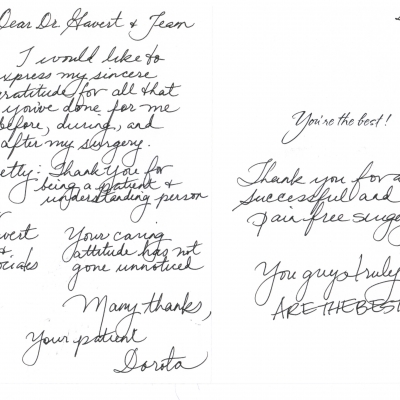 Dear Dr Gavert & Team
I would like to
express my sincere
gratitude for all that
you've done for me
before, during, and
after my surgery.
etty: Thank You for
being a patient &
understanding person
vert Your caring
& attitude has not
ociates gone unnoticed
Many thanks,
Your patient
Dorota
You're the best!
Thank you for a
successful and
pain free surge
You guys truly
ARE THE BEST